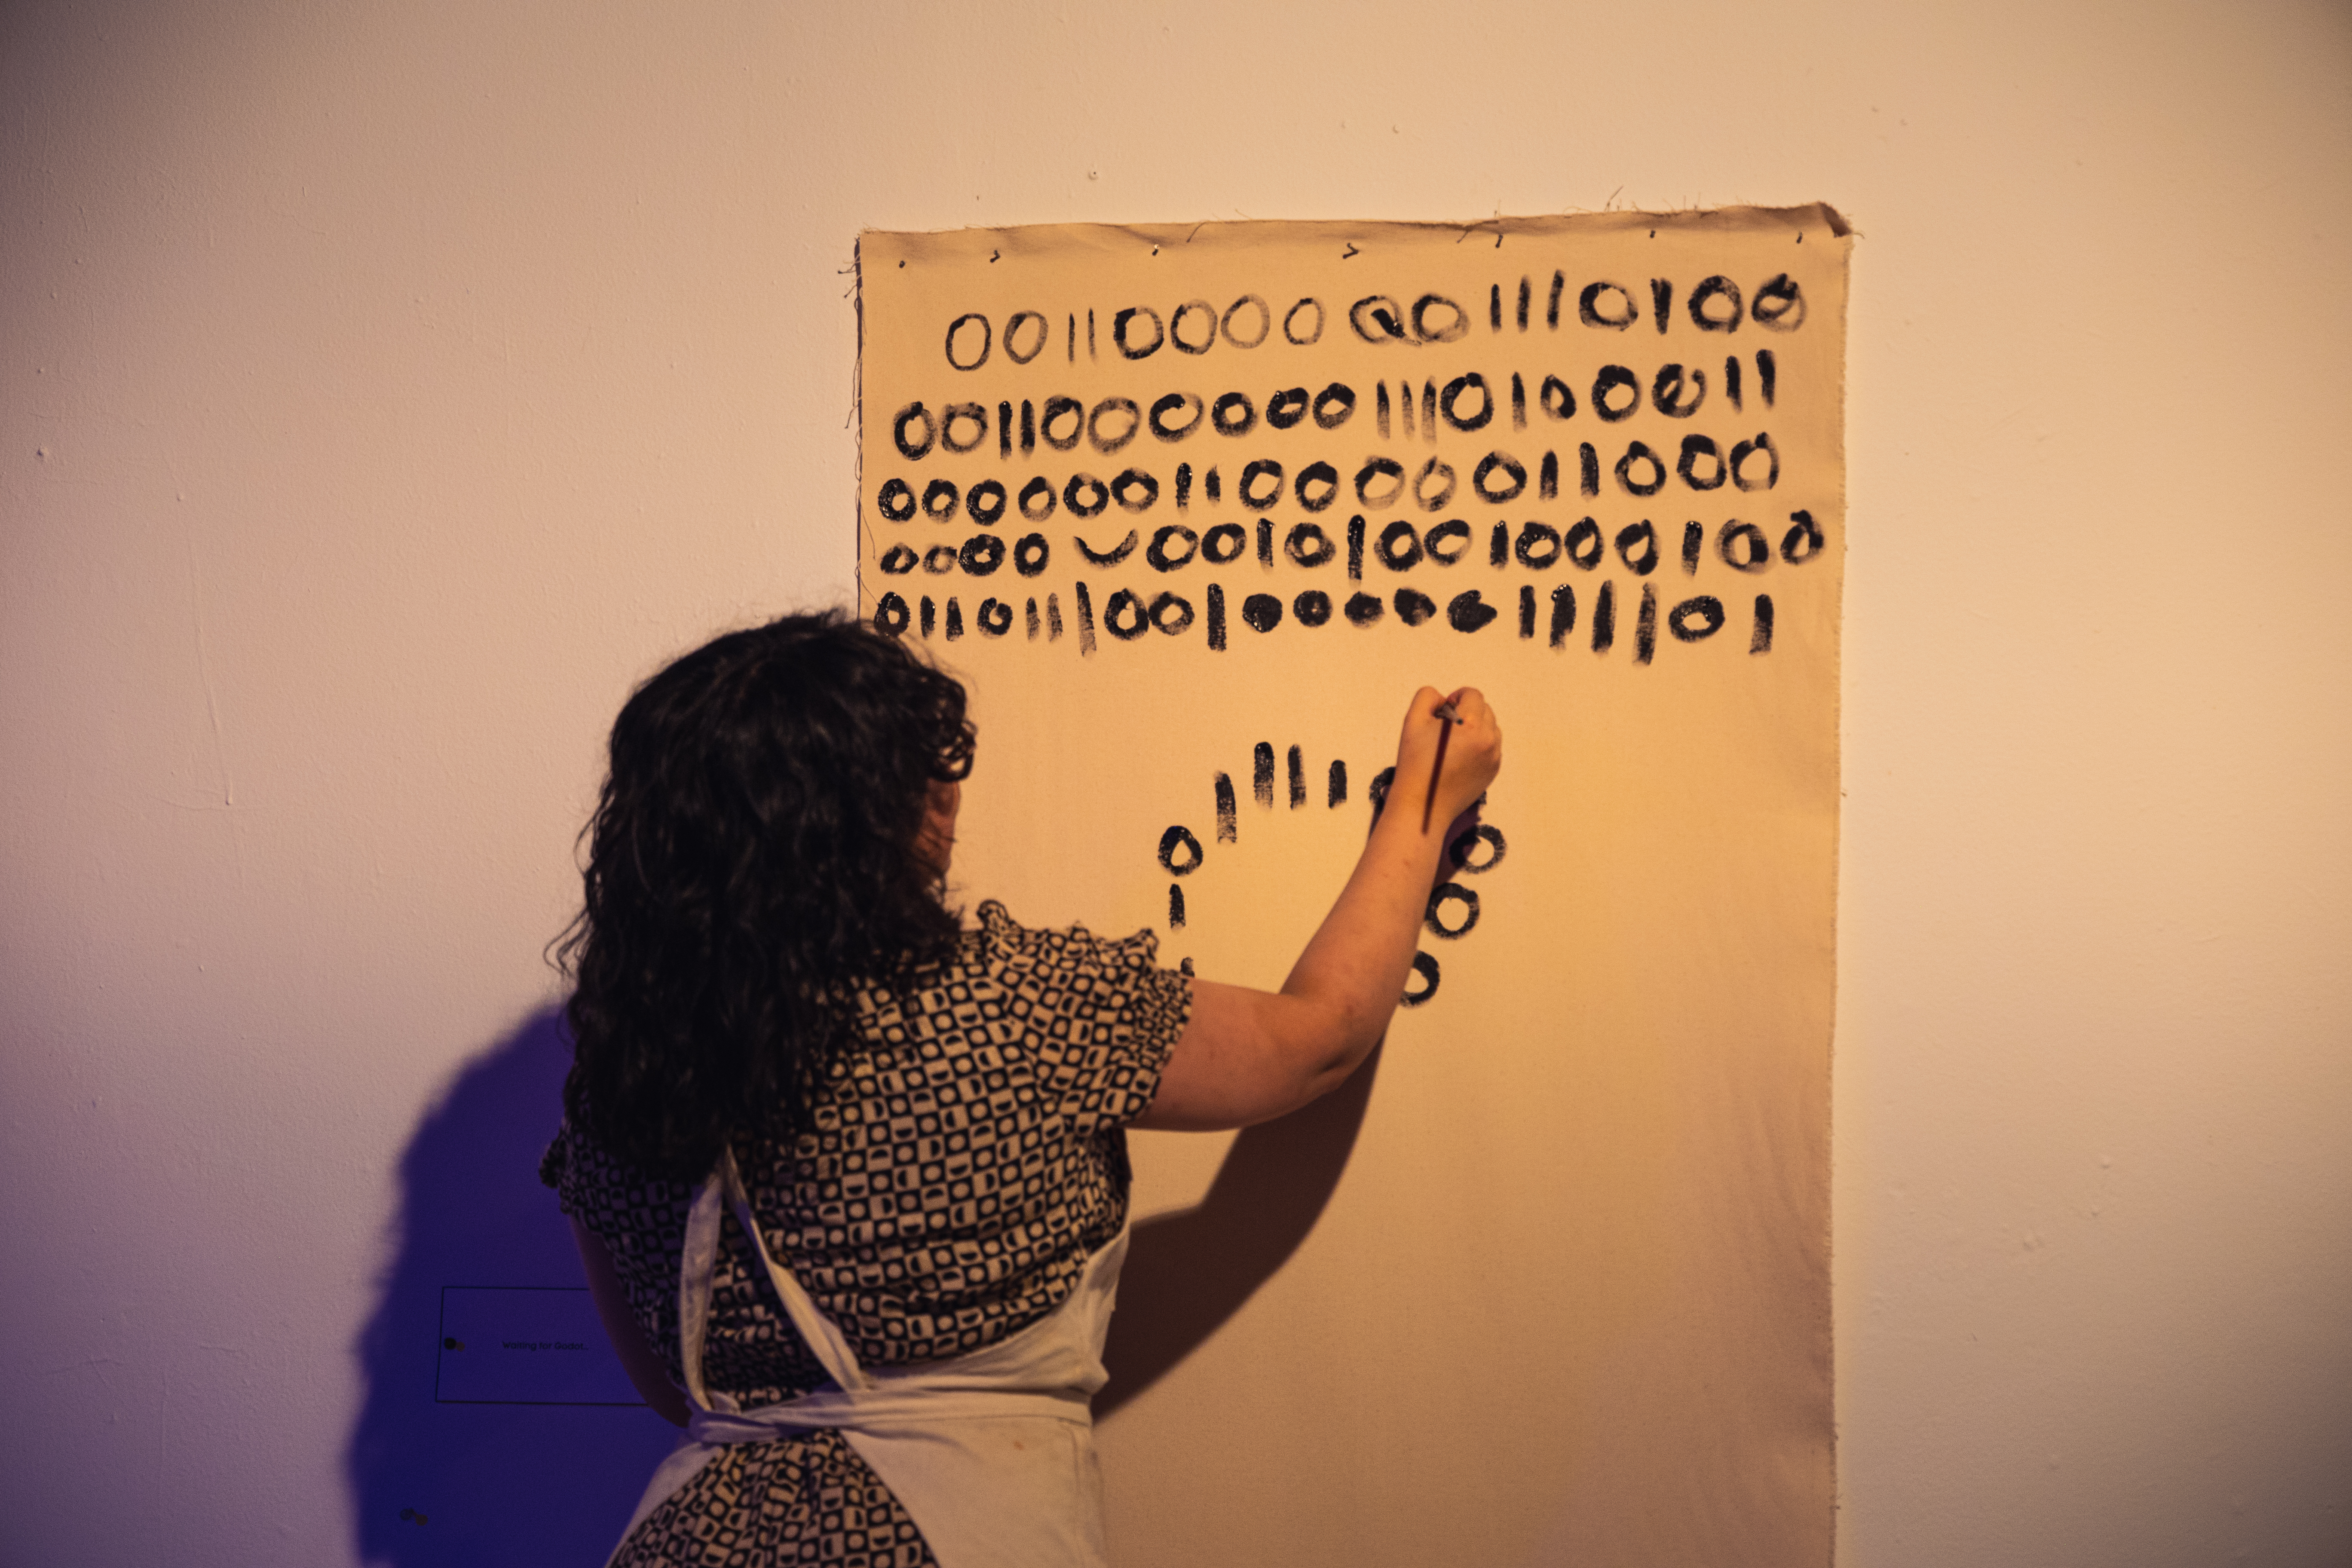 00110000001110100
00110000001110100011
000000110000011000
0000 ‿00101001000100
011011100100000111101
01111
1
000
Waiting for Godot...